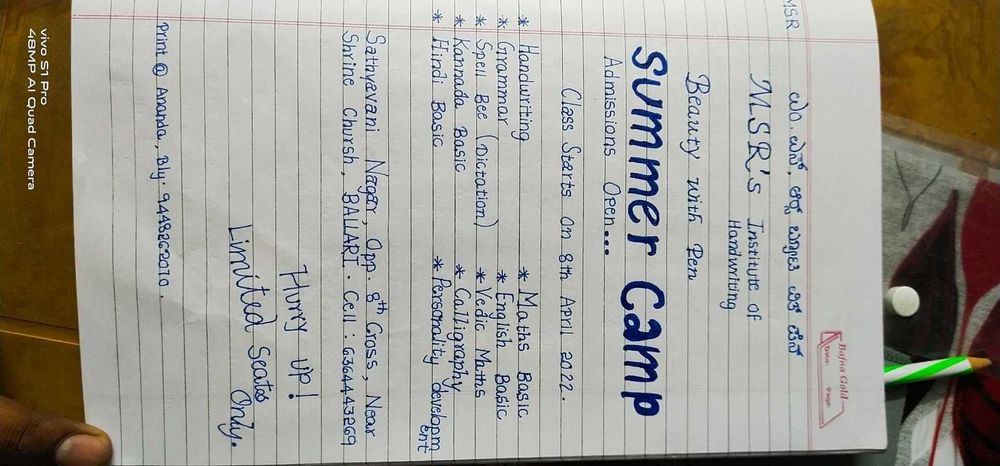 MSR
Bafna Gold
Date: Page:
ಎಂ.ಎಸ್. ಆರ್ ಬ್ಯೂಟಿ ವಿತ್ ಪೆನ್
MSR's Institute of
Handwriting
Beauty with Pen
Summer Camp
Admissions Open...
Class Starts On 8th April 2022.
* Handwriting * Maths Basic
* Grammar * English Basic
* Spell Bee (Dictation) * Vedic Maths
* Kannada Basic * Calligraphy
* Hindi Basic * Personality developm
ent
Sathyavani Nagar, Opp. 8th Cross, Near
Shrine Chursh, BALLARI. Cell: 6364443269
Hurry UP!
Limited Seates
Only.
Print @ Ananda, Bly: 9448262010.
vivo S1 Pro
48MP AI Quad Camera